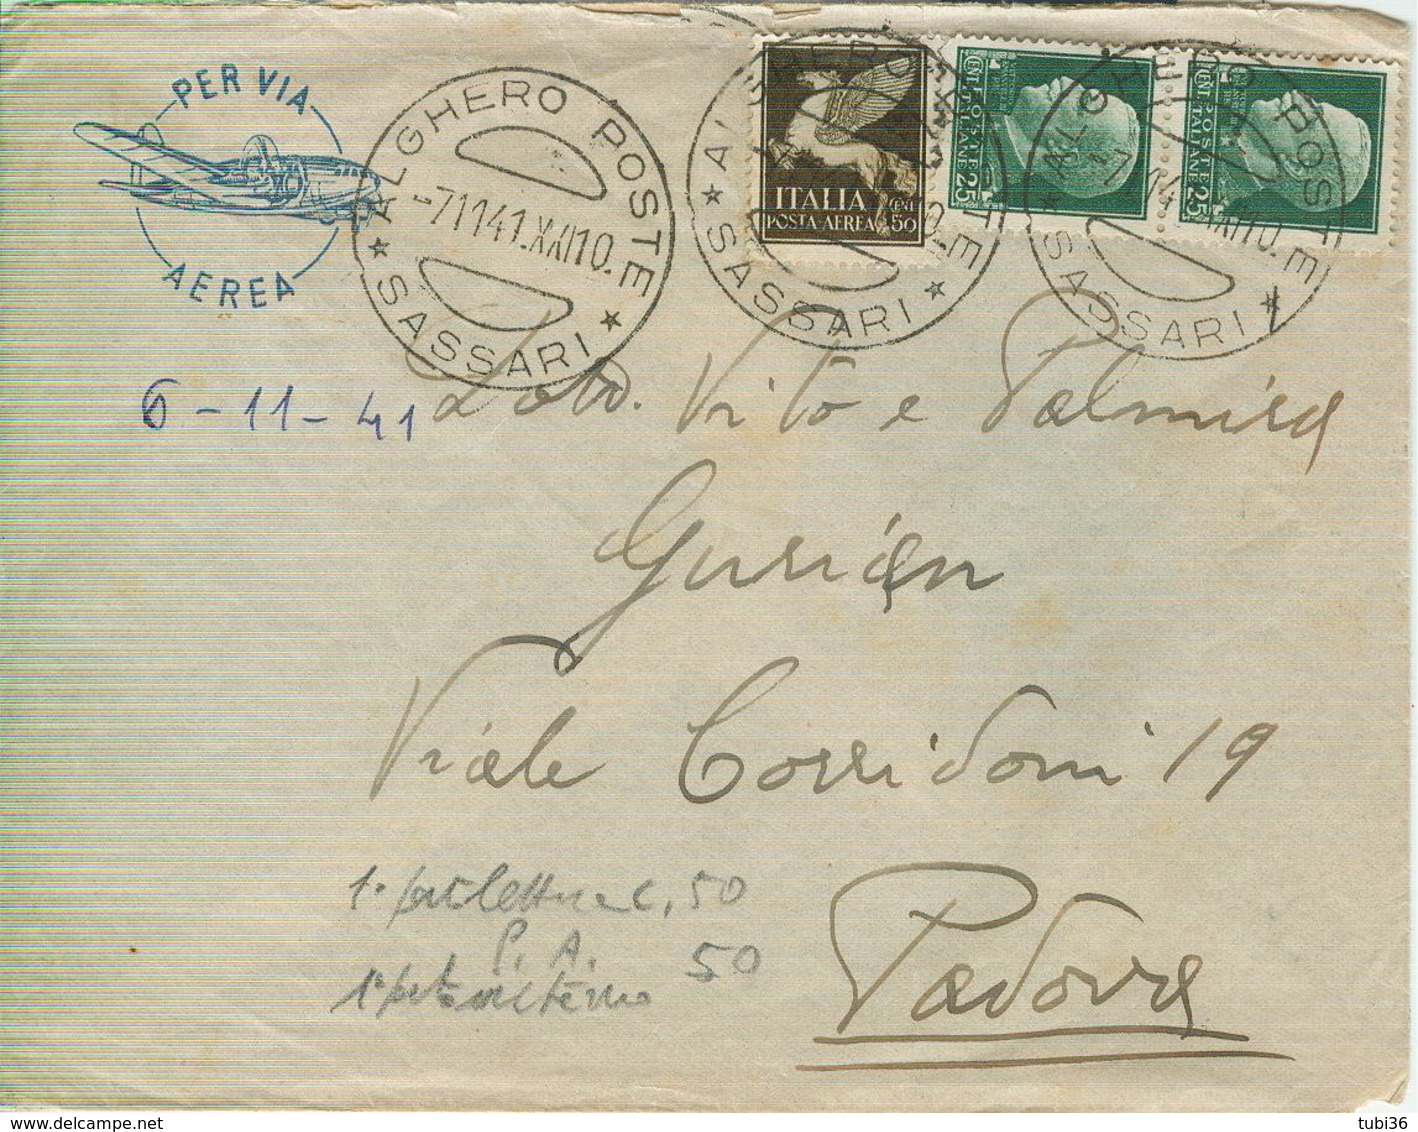 PER VIA
AEREA
ALGHERO POSTE
-7 11 41.XXI 10.
★ SASSARI ★
ALGHERO
★ SASSARI ★
ITALIA
POSTA AEREA
50
POSTE ITALIANE
25
POSTE ITALIANE
25
ALGHERO POSTE
★ SASSARI ★
6-11-41
Vito e Palmira
Gurian
Viale Corridoni 19
Padova
1° porto lettere c. 50
P. A.
1° porto interno 50
www.delcampe.net
tubi36